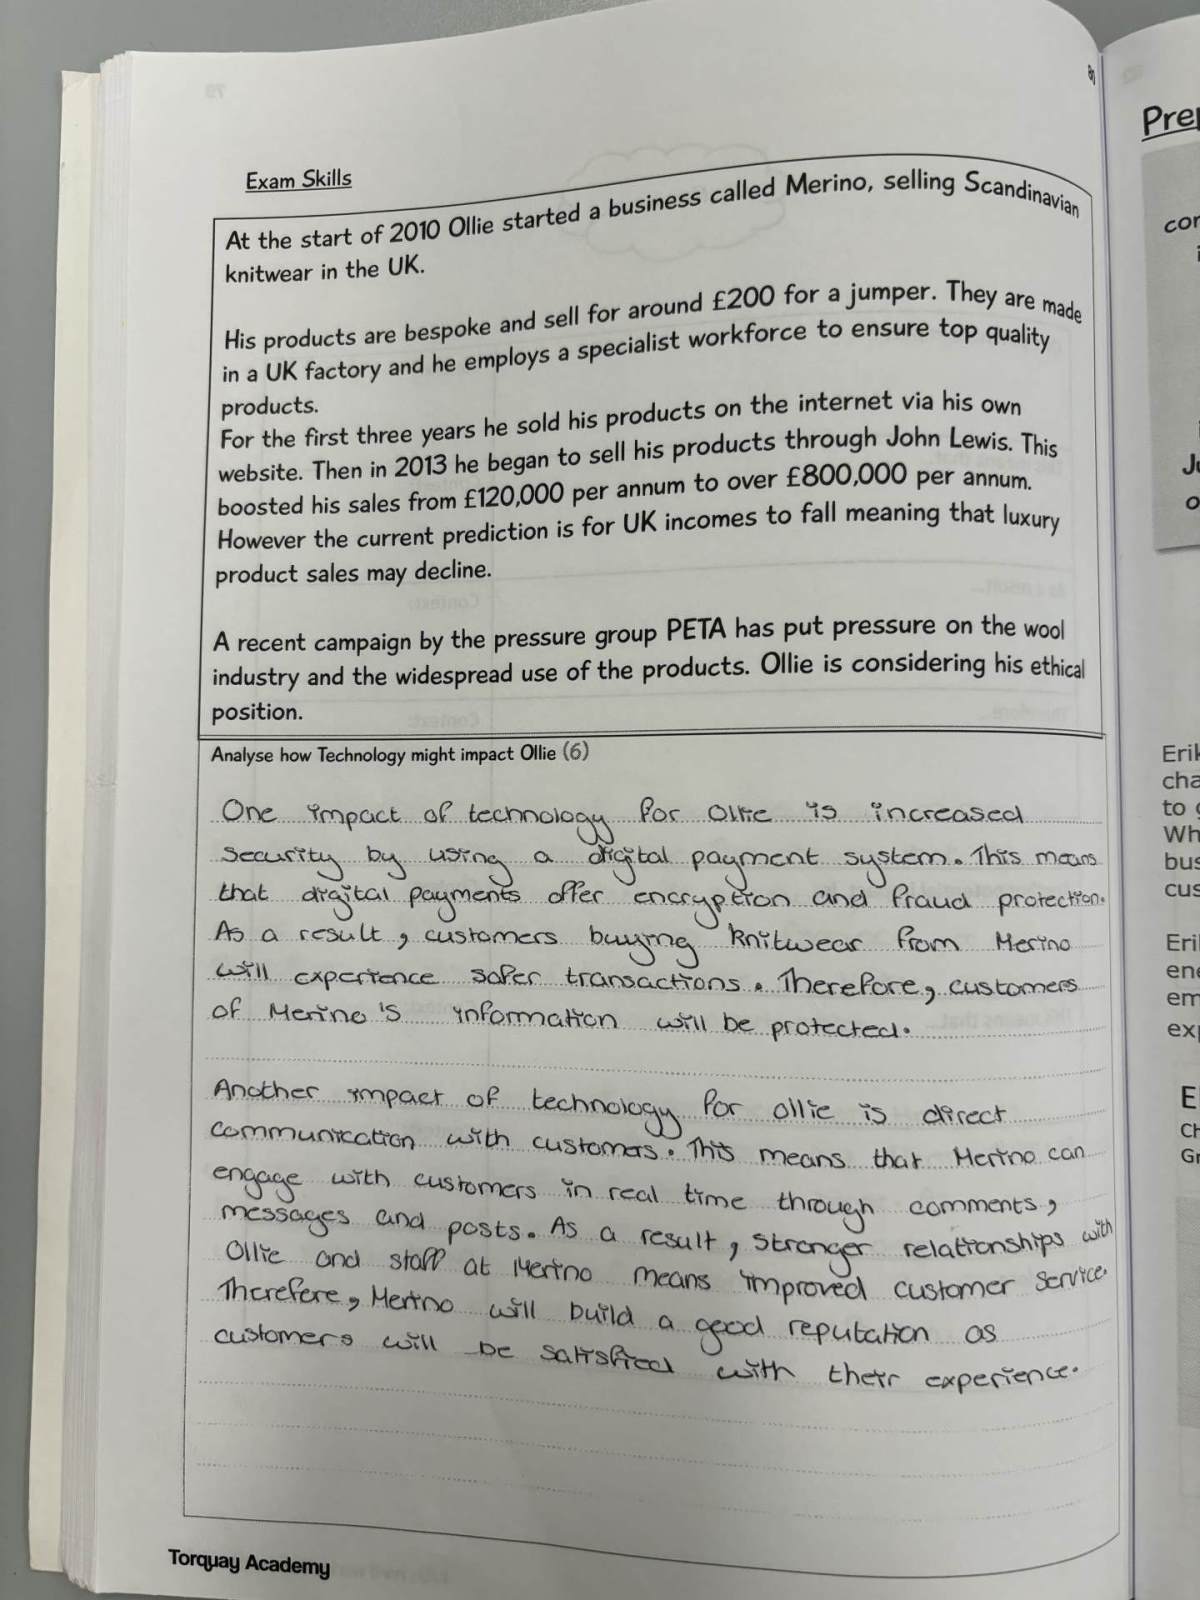 79
80
Exam Skills
At the start of 2010 Ollie started a business called Merino, selling Scandinavian
knitwear in the UK.
His products are bespoke and sell for around £200 for a jumper. They are made
in a UK factory and he employs a specialist workforce to ensure top quality
products.
For the first three years he sold his products on the internet via his own
website. Then in 2013 he began to sell his products through John Lewis. This
boosted his sales from £120,000 per annum to over £800,000 per annum.
However the current prediction is for UK incomes to fall meaning that luxury
product sales may decline.
A recent campaign by the pressure group PETA has put pressure on the wool
industry and the widespread use of the products. Ollie is considering his ethical
position.
Analyse how Technology might impact Ollie (6)
One impact of technology for Ollie is increased
security by using a digital payment system. This means
that digital payments offer encryption and fraud protection.
As a result, customers buying knitwear from Merino
will experience safer transactions. Therefore, customers
of Merino's information will be protected.
Another impact of technology for ollie is direct
communication with customers. This means that Merino can
engage with customers in real time through comments,
messages and posts. As a result, stronger relationships with
Ollie and staff at Merino means improved customer service.
Therefore, Merino will build a good reputation as
customers will be satisfied with their experience.
Torquay Academy
Prep
cor
i
Ju
o
Erik
cha
to g
Wh
bus
cus
Eri
ene
em
exp
E
Ch
Gr